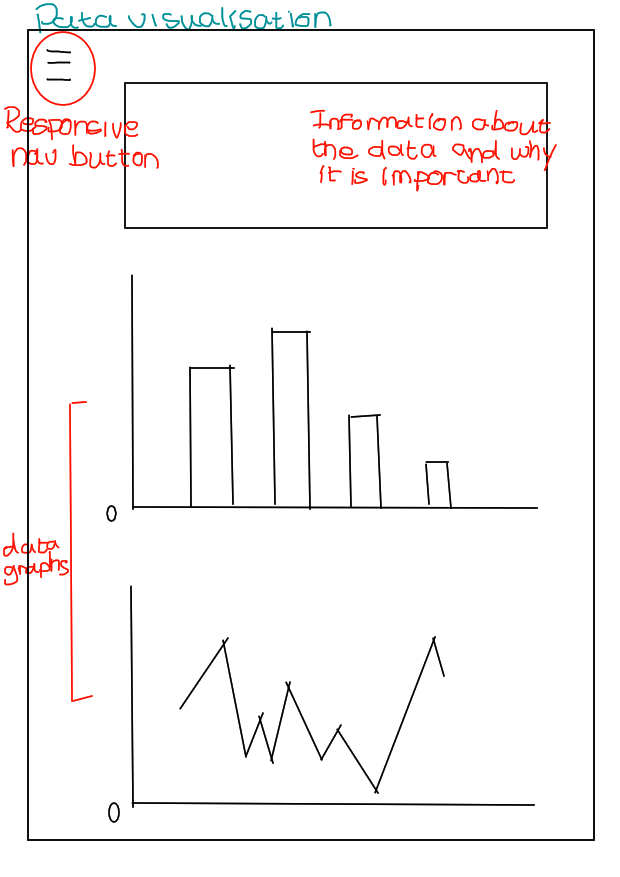 Data visualisation
Responsive
nav button
Information about
the data and why
it is important
0
data
graphs
0